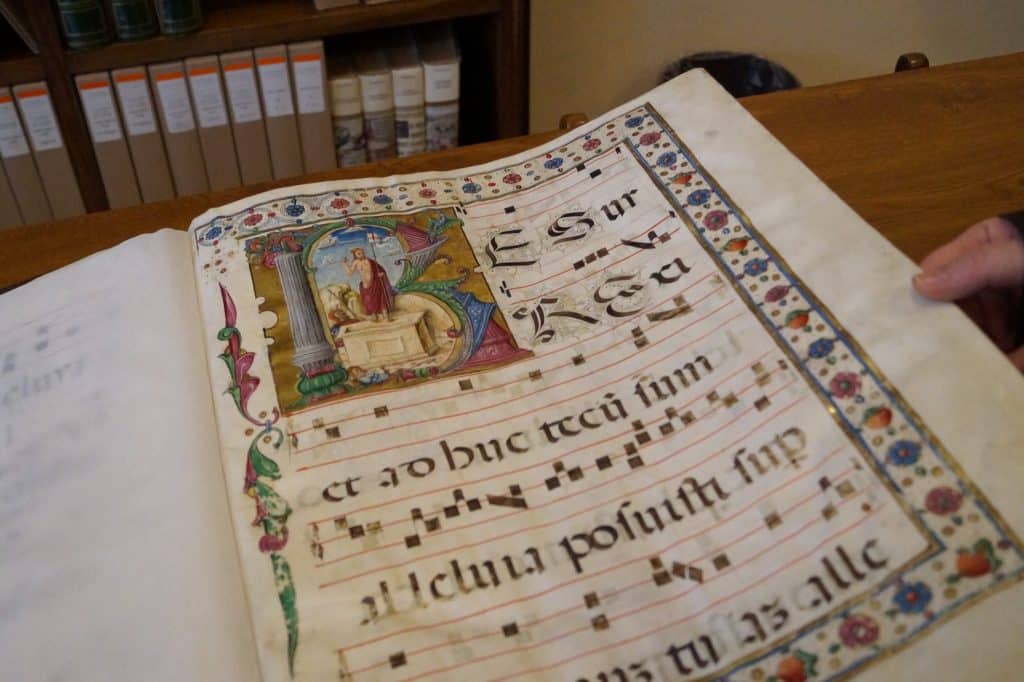 RESur
RExi
et ad huc tecū sum
alleluia posuisti sup
tuaz alle